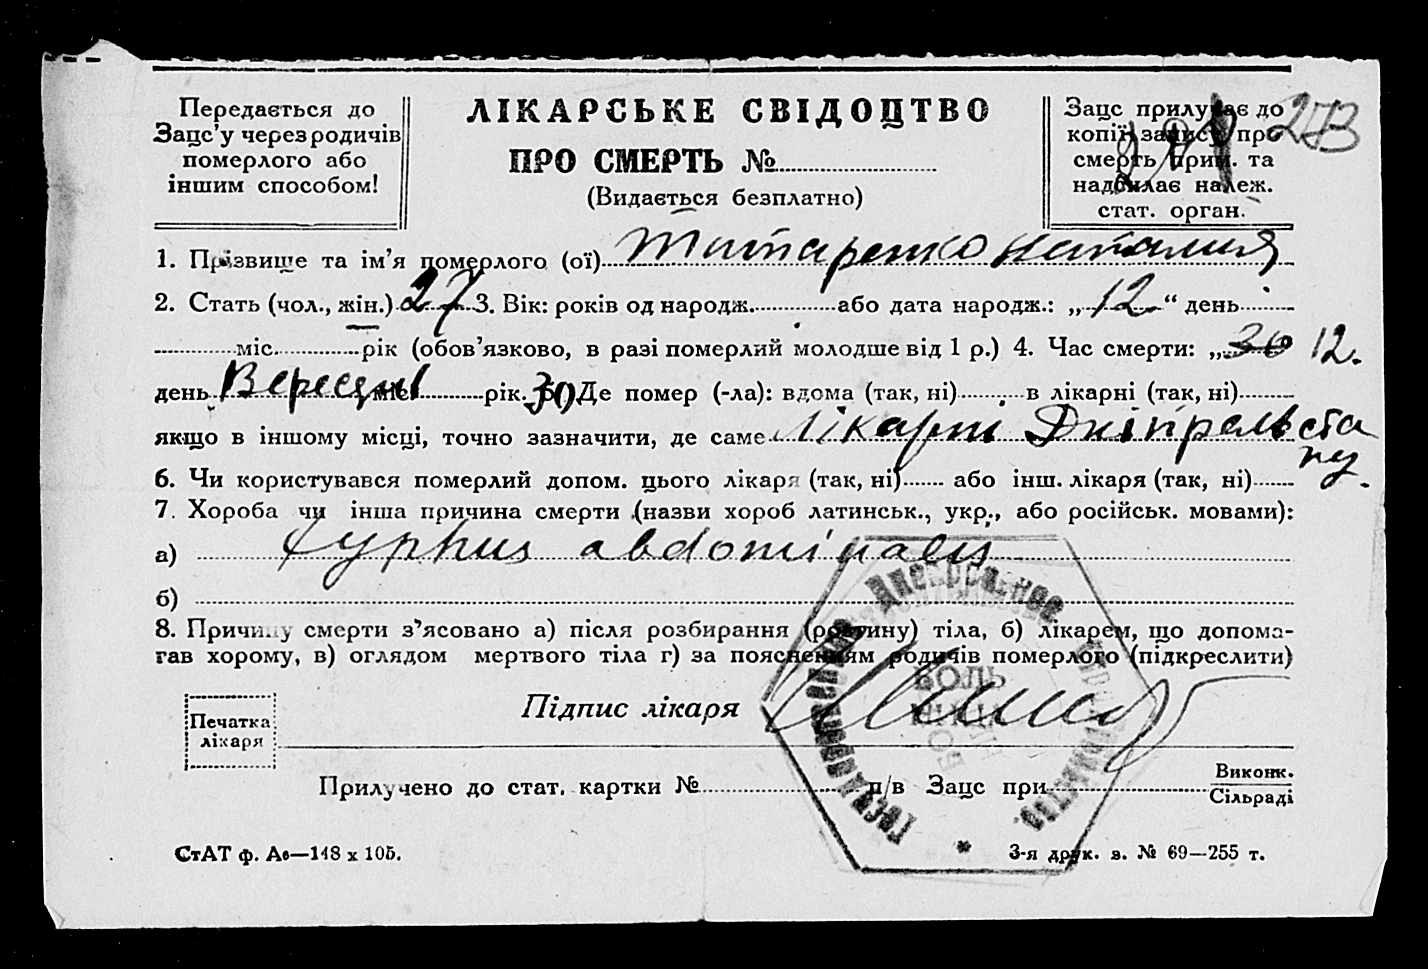 Передається до
Зацс'у через родичів
померлого або
іншим способом!
ЛІКАРСЬКЕ СВІДОЦТВО
ПРО СМЕРТЬ №
(Видається безплатно)
Зацс прилучає до
копії запису про
смерть прим. та
надсилає належ.
стат. орган.
273
1. Прізвище та ім'я померлого (ої) Титаренко Наталия
2. Стать (чол., жін.) 27 3. Вік: років од народж. або дата народж.: „ 12 “ день
міс. рік (обов'язково, в разі померлий молодше від 1 р.) 4. Час смерти: „ 30 12.
день Вересня міс. рік. 30 5. Де помер (-ла): вдома (так, ні) в лікарні (так, ні)
якщо в іншому місці, точно зазначити, де саме Лікарні Дніпрельста
ну.
6. Чи користувався померлий допом. цього лікаря (так, ні) або інш. лікаря (так, ні)
7. Хороба чи інша причина смерти (назви хороб латинськ., укр., або російськ. мовами):
а) typhus abdominalis
б)
8. Причину смерти з'ясовано а) після розбирання (розтину) тіла, б) лікарем, що допома-
гав хорому, в) оглядом мертвого тіла г) за поясненням родичів померлого (підкреслити)
Печатка
лікаря
Підпис лікаря
Прилучено до стат. картки № п/в Зацс при Виконк.
Сільраді
СтАТ ф. А6—148 х 105.
3-я друк. з. № 69—255 т.